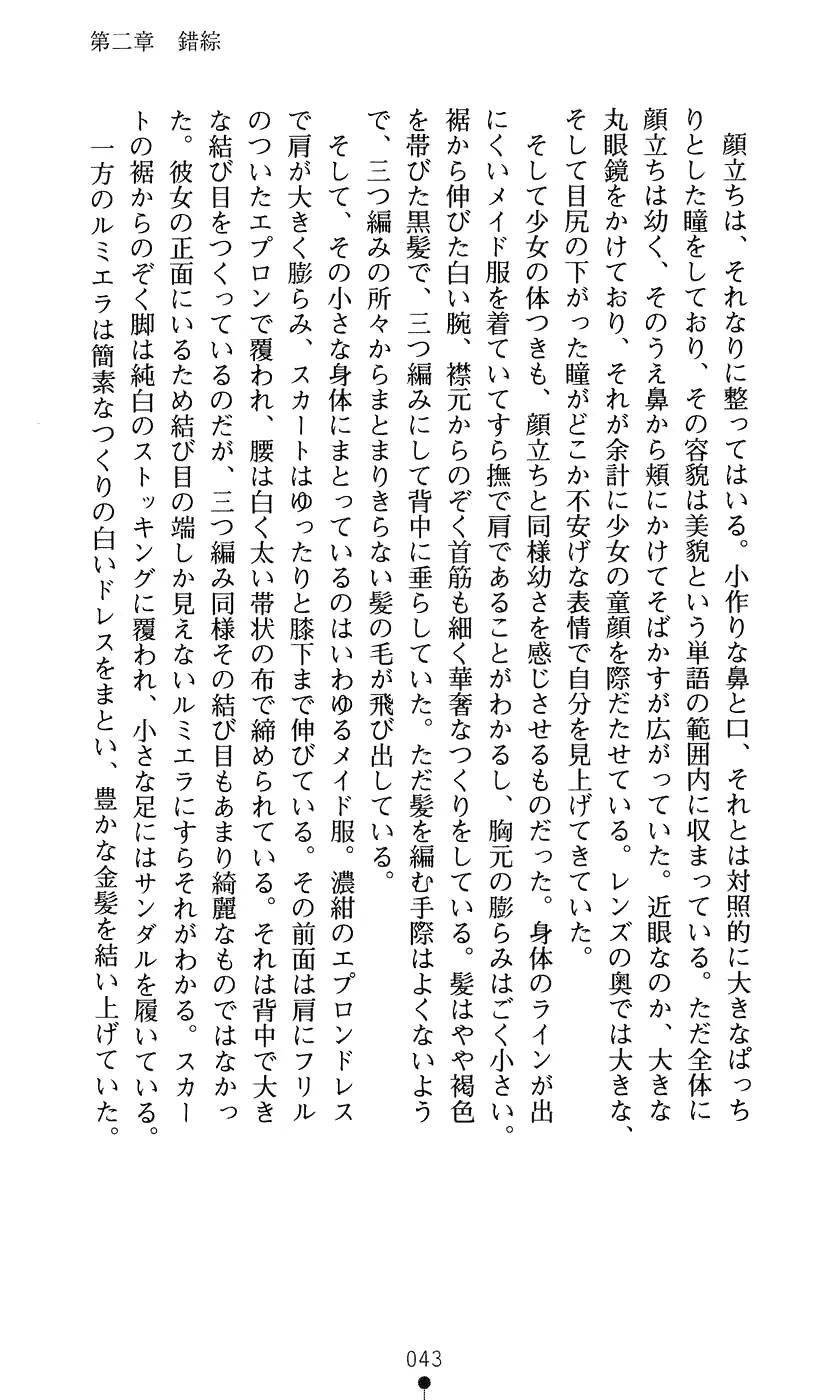 第二章　錯綜
　顔立ちは、それなりに整ってはいる。小作りな鼻と口、それとは対照的に大きなぱっち
りとした瞳をしており、その容貌は美貌という単語の範囲内に収まっている。ただ全体に
顔立ちは幼く、そのうえ鼻から頬にかけてそばかすが広がっていた。近眼なのか、大きな
丸眼鏡をかけており、それが余計に少女の童顔を際だたせている。レンズの奥では大きな、
そして目尻の下がった瞳がどこか不安げな表情で自分を見上げてきていた。
　そして少女の体つきも、顔立ちと同様幼さを感じさせるものだった。身体のラインが出
にくいメイド服を着ていてすら撫で肩であることがわかるし、胸元の膨らみはごく小さい。
裾から伸びた白い腕、襟元からのぞく首筋も細く華奢なつくりをしている。髪はやや褐色
を帯びた黒髪で、三つ編みにして背中に垂らしていた。ただ髪を編む手際はよくないよう
で、三つ編みの所々からまとまりきらない髪の毛が飛び出している。
　そして、その小さな身体にまとっているのはいわゆるメイド服。濃紺のエプロンドレス
で肩が大きく膨らみ、スカートはゆったりと膝下まで伸びている。その前面は肩にフリル
のついたエプロンで覆われ、腰は白く太い帯状の布で締められている。それは背中で大き
な結び目をつくっているのだが、三つ編み同様その結び目もあまり綺麗なものではなかっ
た。彼女の正面にいるため結び目の端しか見えないルミエラにすらそれがわかる。スカー
トの裾からのぞく脚は純白のストッキングに覆われ、小さな足にはサンダルを履いている。
　一方のルミエラは簡素なつくりの白いドレスをまとい、豊かな金髪を結い上げていた。
043